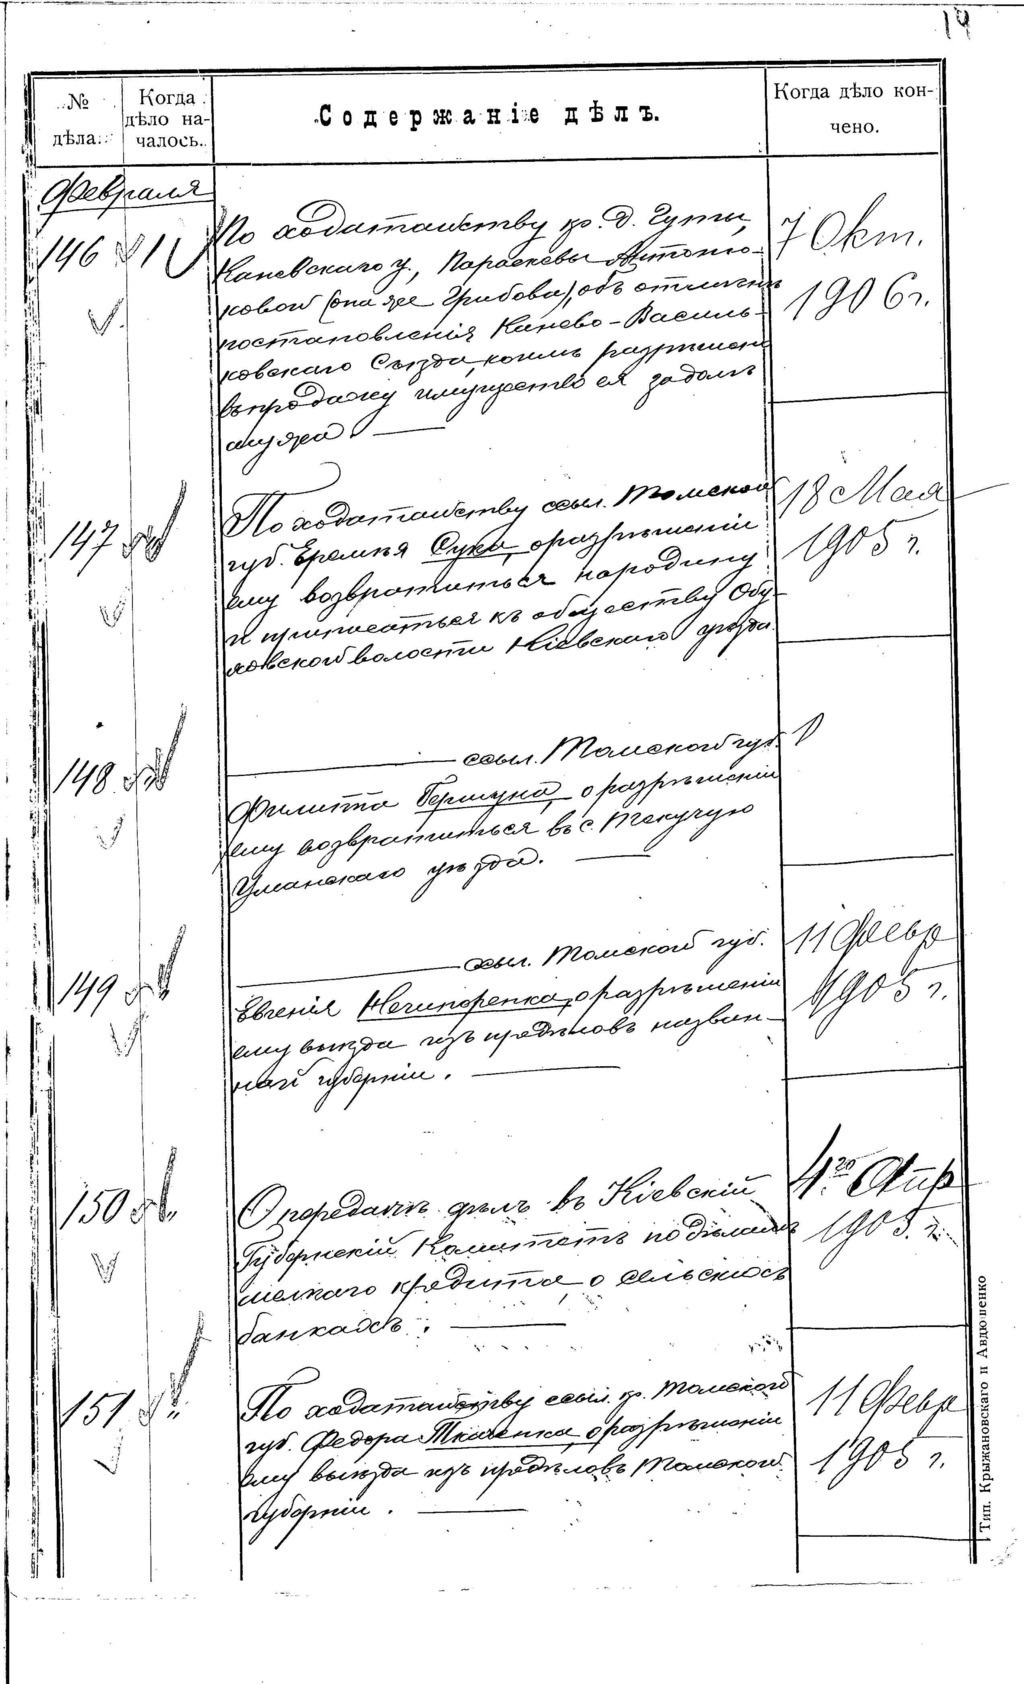 14
№ дѣла.
Когда дѣло началось.
Содержаніе дѣлъ.
Когда дѣло кончено.
Февраля
146
11
По ходатайству кр. д. Гуты,
Каневскаго у., Параскевы Антоню-
ковой (она же Грибова), объ отмѣнѣ
постановленія Канево-Василь-
ковскаго Съѣзда, коимъ разрѣшено
въ продажу имущество ея за долгъ
мужа. —
7 Окт.
1906 г.
147
По ходатайству ссыл. Томской
губ. Еремѣя Сука, о разрѣшеніи
ему возвратиться на родину
и приписаться къ обществу Обу-
ховской волости Кіевскаго уѣзда.
18 Мая
1905 г.
148
— ссыл. Томской губ.
Филиппа Гершуна, о разрѣшеніи
ему возвратиться въ с. Текучую
Уманскаго уѣзда. —
149
— ссыл. Томской губ.
Евгенія Нечипоренка, о разрѣшеніи
ему выѣзда изъ предѣловъ назван-
ной губерніи. —
11 Февр
1905 г.
150
О передачѣ дѣлъ въ Кіевскій
Губернскій Комитетъ по дѣламъ
мелкаго кредита о сельскихъ
банкахъ. —
4го Апр
1905 г.
151
По ходатайству ссыл. кр. Томской
губ. Федора Ткаченка, о разрѣшеніи
ему выѣзда изъ предѣловъ Томской
губерніи. —
11 Февр
1905 г.
Тип. Крыжановскаго и Авдюшенко